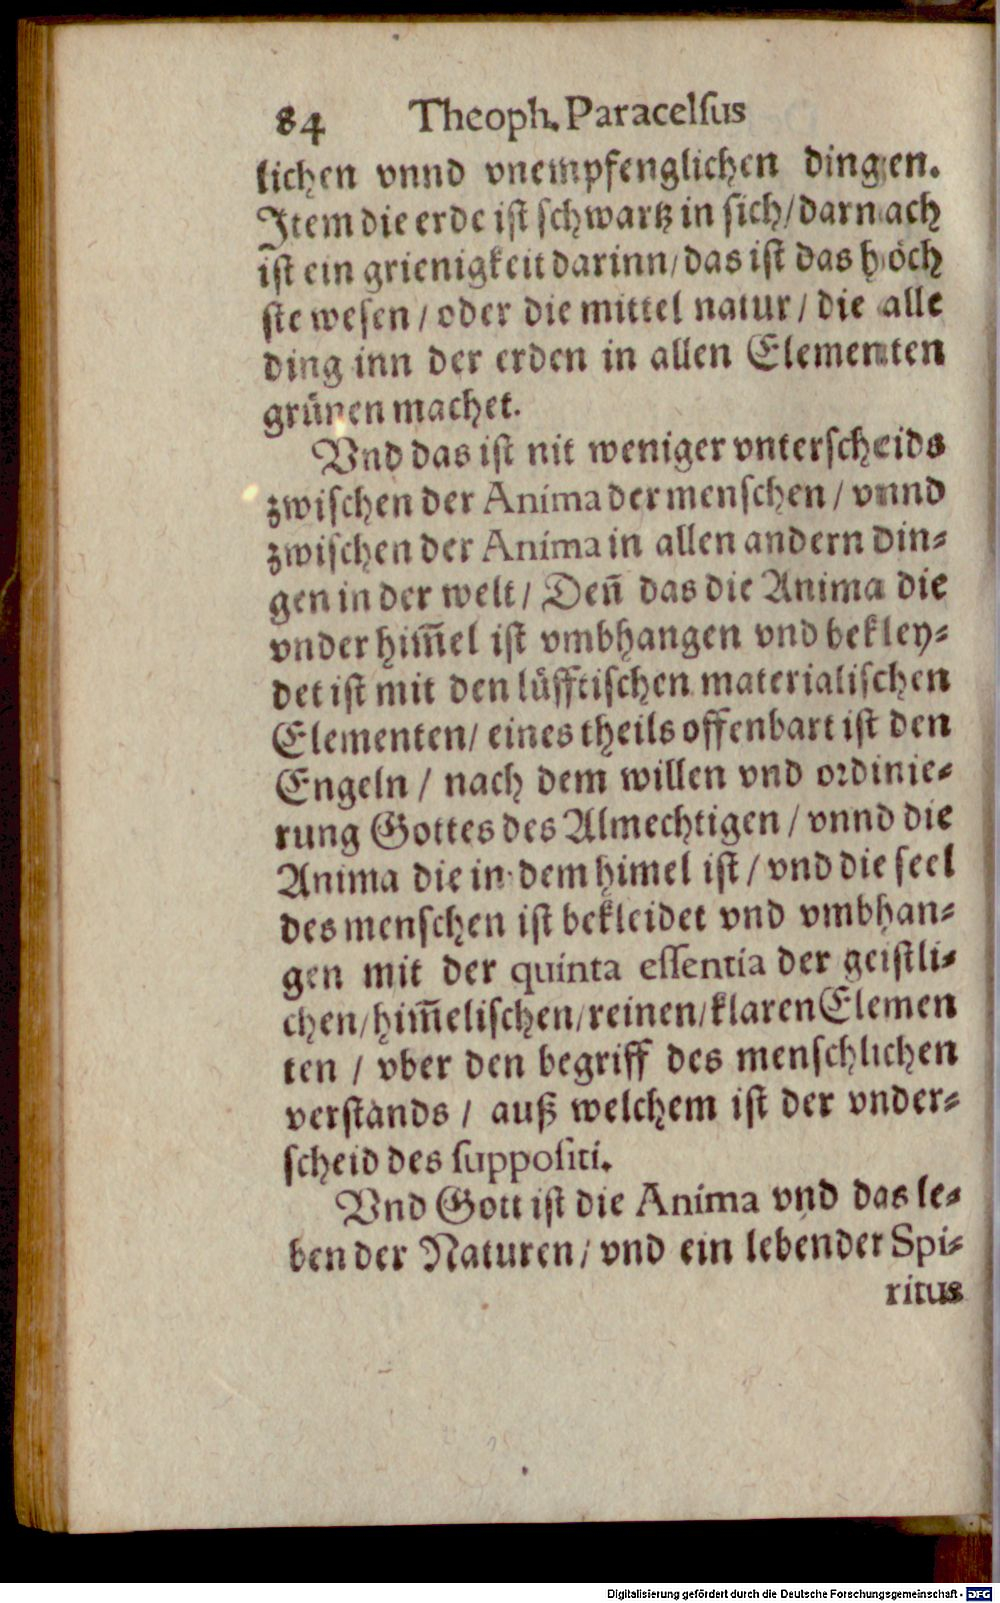 84 Theoph. Paracelsus
lichen vnnd vnempfenglichen dingen.
Item die erde ist schwartz in sich / darnach
ist ein grienigkeit darinn / das ist das höch
ste wesen / oder die mittel natur / die alle
ding inn der erden in allen Elementen
grünen machet.
Vnd das ist nit weniger vnterscheids
zwischen der Anima der menschen / vnnd
zwischen der Anima in allen andern din⸗
gen in der welt / Deñ das die Anima die
vnder him̃el ist vmbhangen vnd bekley⸗
det ist mit den lüfftischen materialischen
Elementen / eines theils offenbart ist den
Engeln / nach dem willen vnd ordinie⸗
rung Gottes des Almechtigen / vnnd die
Anima die in dem himel ist / vnd die seel
des menschen ist bekleidet vnd vmbhan⸗
gen mit der quinta essentia der geistli⸗
chen / him̃elischen / reinen / klaren Elemen
ten / vber den begriff des menschlichen
verstands / auß welchem ist der vnder⸗
scheid des suppositi.
Vnd Gott ist die Anima vnd das le⸗
ben der Naturen / vnd ein lebender Spi⸗
ritus
Digitalisierung gefördert durch die Deutsche Forschungsgemeinschaft - DFG